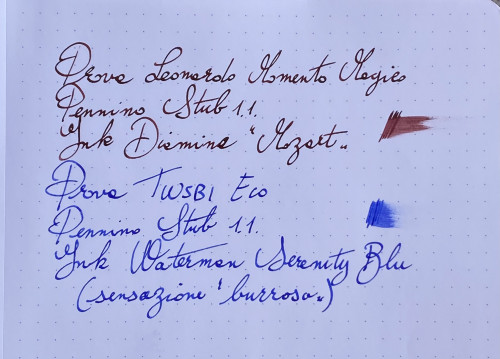 Prova Leonardo Momento Magico
Pennino Stub 1.1.
Ink Diamine "Mozart„
Prova TWSBI Eco
Pennino Stub 1.1.
Ink Waterman Serenity Blu
(sensazione "burrosa„)